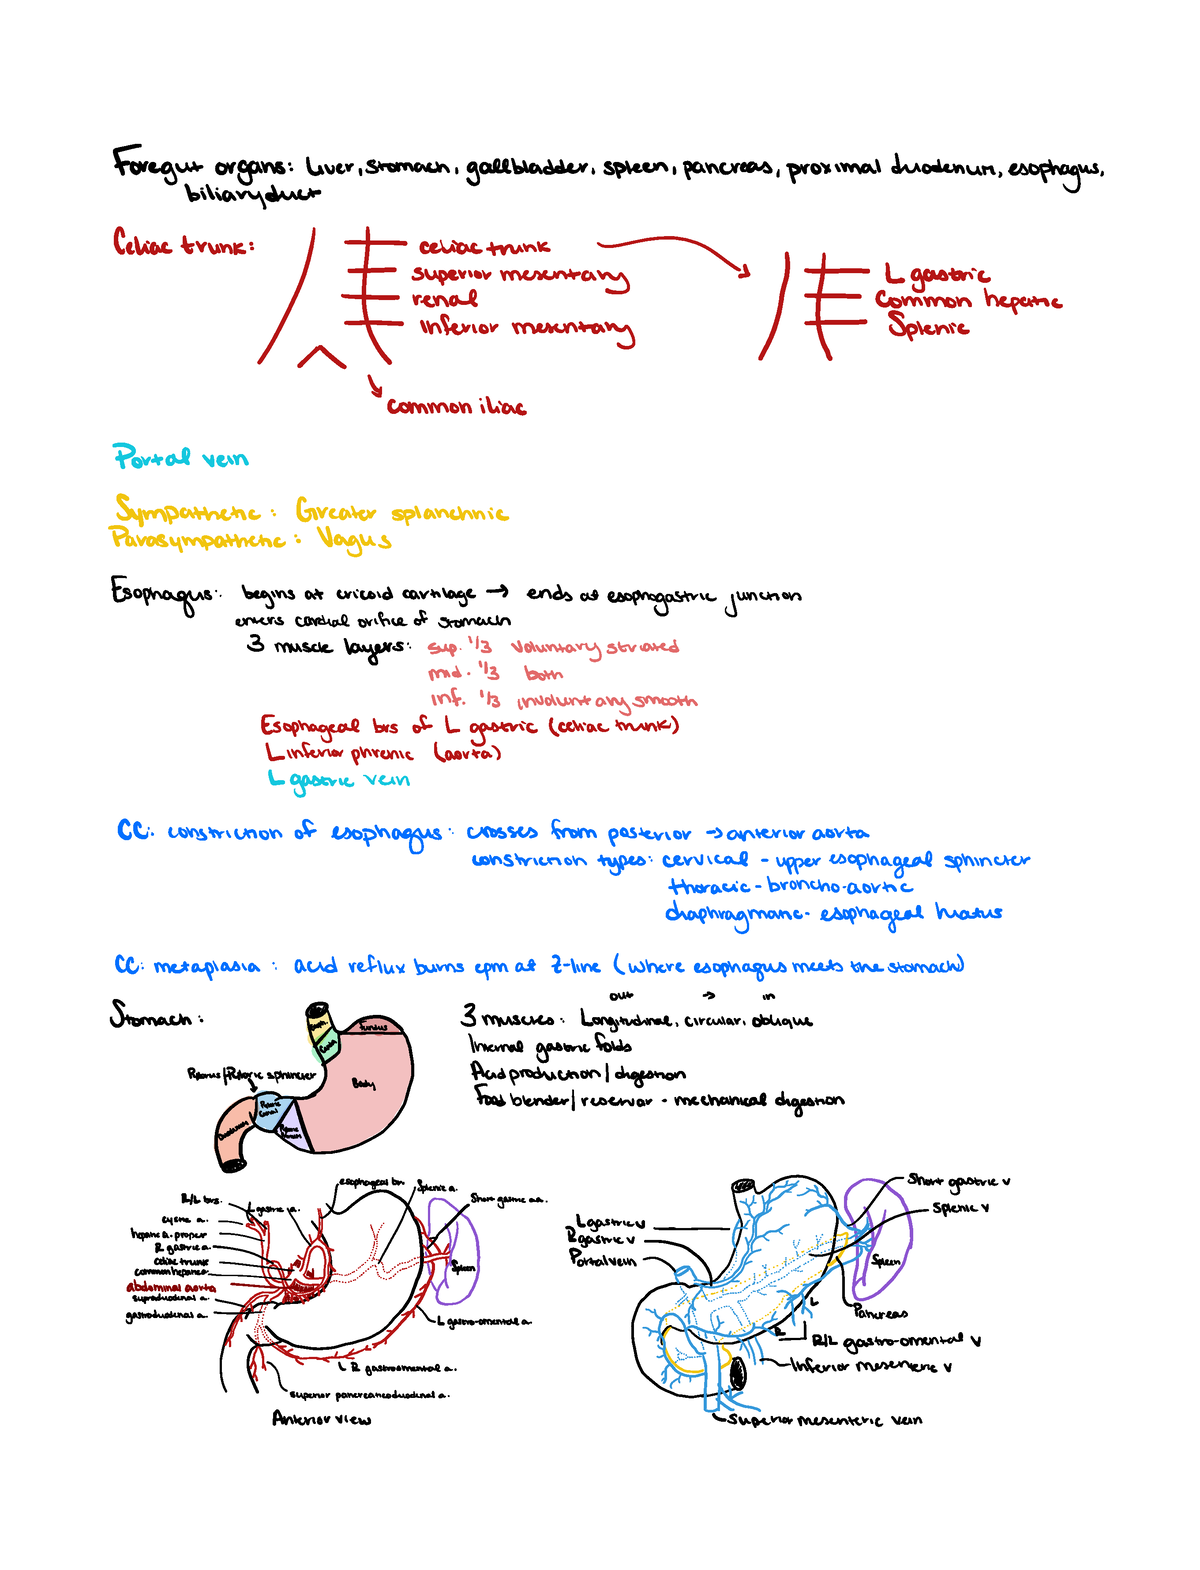 Foregut organs: Liver, stomach, gallbladder, spleen, pancreas, proximal duodenum, esophagus,
biliary duct
Celiac trunk:
celiac trunk
superior mesentary
renal
inferior mesentary
common iliac
L gastric
Common hepatic
Splenic
Portal vein
Sympathetic: Greater splanchnic
Parasympathetic: Vagus
Esophagus: begins at cricoid cartilage → ends at esophogastric junction
enters cardial orifice of stomach
3 muscle layers: sup. 1/3 voluntary striated
mid. 1/3 both
inf. 1/3 involuntary smooth
Esophageal brs of L gastric (celiac trunk)
L inferior phrenic (aorta)
L gastric vein
CC: constriction of esophagus: crosses from posterior → anterior aorta
constriction types: cervical - upper esophageal sphincter
thoracic - broncho-aortic
diaphragmanc - esophageal hiatus
CC: metaplasia: acid reflux burns epm at Z-line (where esophagus meets the stomach)
Stomach:
out → in
3 muscles: Longitudinal, circular, oblique
Internal gastric folds
Acid production/digestion
Food blender/reservar - mechanical digestion
Fundus
Body
Duodenum
R/L brs.
cystic a.
hepatic a. proper
R gastric a.
celiac trunk
common hepatic a.
abdominal aorta
supraduodenal a.
gastroduodenal a.
L gastric a.
esophageal br.
Splenic a.
Short gastric aa.
Spleen
L gastro-omental a.
R gastroomental a.
superior pancreaticoduodenal a.
Anterior view
L gastric v
R gastric v
Portal vein
Short gastric v
Splenic v
Spleen
Pancreas
L
R
R/L gastro-omental v
Inferior mesenteric v
Superior mesenteric vein